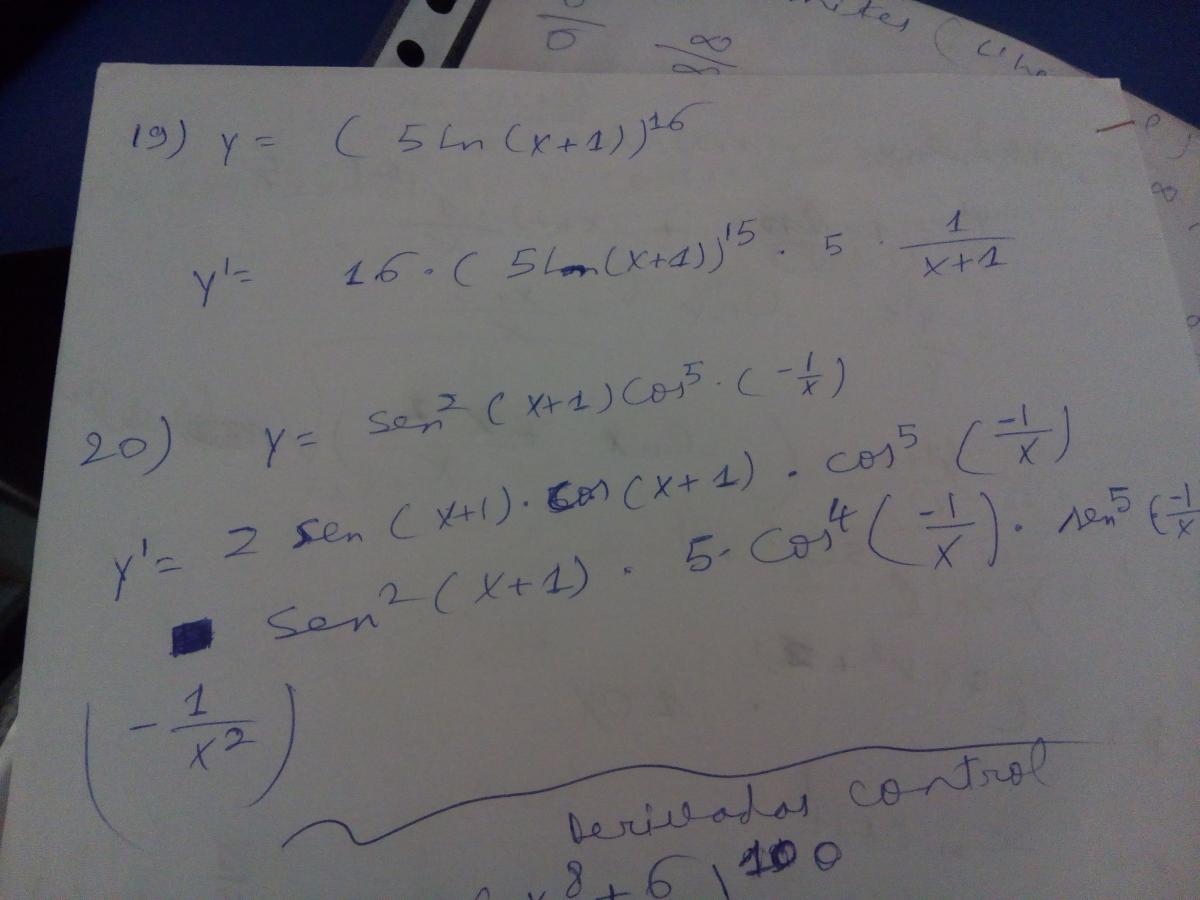 0/0
∞/∞
19) y = (5 Ln (x+1))^16
y' = 16 · (5 Ln (x+1))^15 · 5 · 1/(x+1)
20) y = sen^2 (x+1) cos^5 · (-1/x)
y' = 2 sen (x+1) · cos (x+1) · cos^5 (-1/x)
sen^2 (x+1) · 5 · cos^4 (-1/x) · sen^5 (-1/x
(-1/x^2)
Derivadas control
x^8 + 6 ) 100